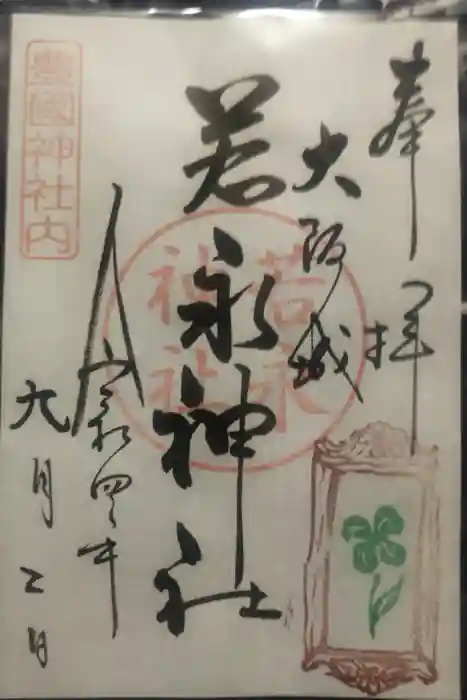 奉拝
大阪城
若永神社
若永神社
令和四年
九月二日
豊國神社内